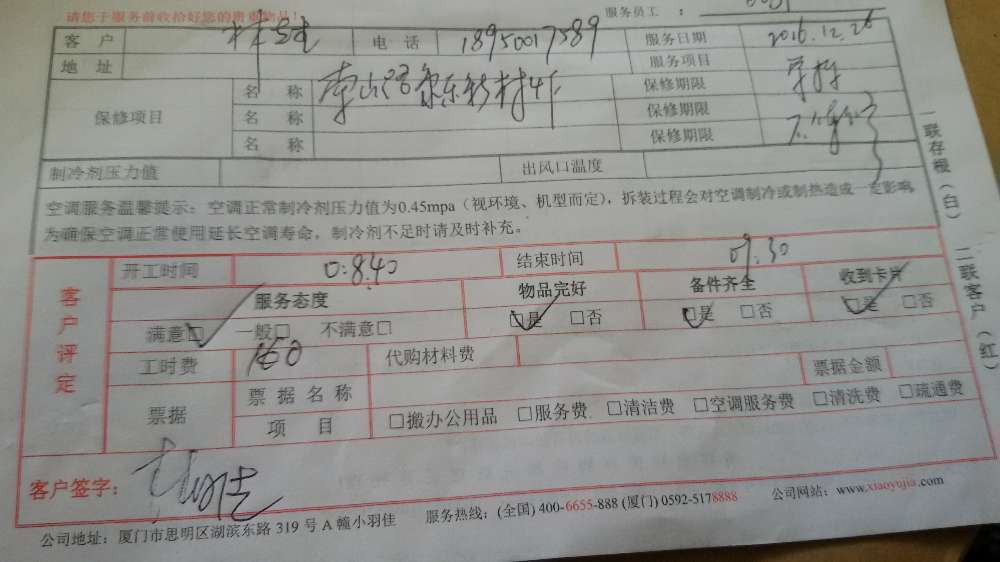 请您于服务前收拾好您的贵重物品!
服务员工 :
客 户 电 话 18950017589 服务日期 2016.12.26
地 址 服务项目
保修项目 名 称 保修期限
名 称 保修期限
名 称 保修期限
制冷剂压力值 出风口温度
空调服务温馨提示：空调正常制冷剂压力值为0.45mpa（视环境、机型而定），拆装过程会对空调制冷或制热造成一定影响，
为确保空调正常使用延长空调寿命，制冷剂不足时请及时补充。
客户评定
开工时间 0:8.40 结束时间 09.30
服务态度 物品完好 备件齐全 收到卡片
满意□ 一般□ 不满意□ □是 □否 □是 □否 □是 □否
工时费 160 代购材料费
票据 票 据 名 称 票据金额
项 目 □搬办公用品 □服务费 □清洁费 □空调服务费 □清洗费 □疏通费
客户签字：
公司地址：厦门市思明区湖滨东路 319 号 A 幢小羽佳 服务热线：(全国) 400-6655-888 (厦门) 0592-5178888 公司网站：www.xiaoyujia.com
一联存根（白）
二联客户（红）